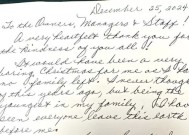 December 25, 2024
To the Owners, Managers & Staff!
A very heartfelt thank you for
the kindness of you all!!
It would have been a very
boring Christmas for me as I have
no family left. I never thought
of this years ago, but being the
youngest in my family, I have
seen everyone leave this earth
before me.